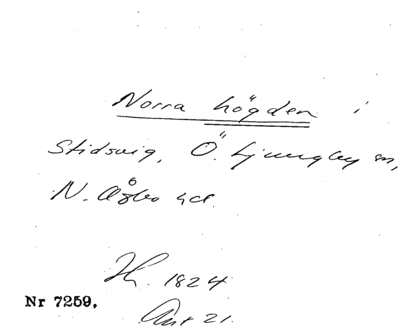 Norra högden i
Stidsvig, Ö. Ljungby sn,
N. Åsbo hd.
1824
Nr 7259.
21.